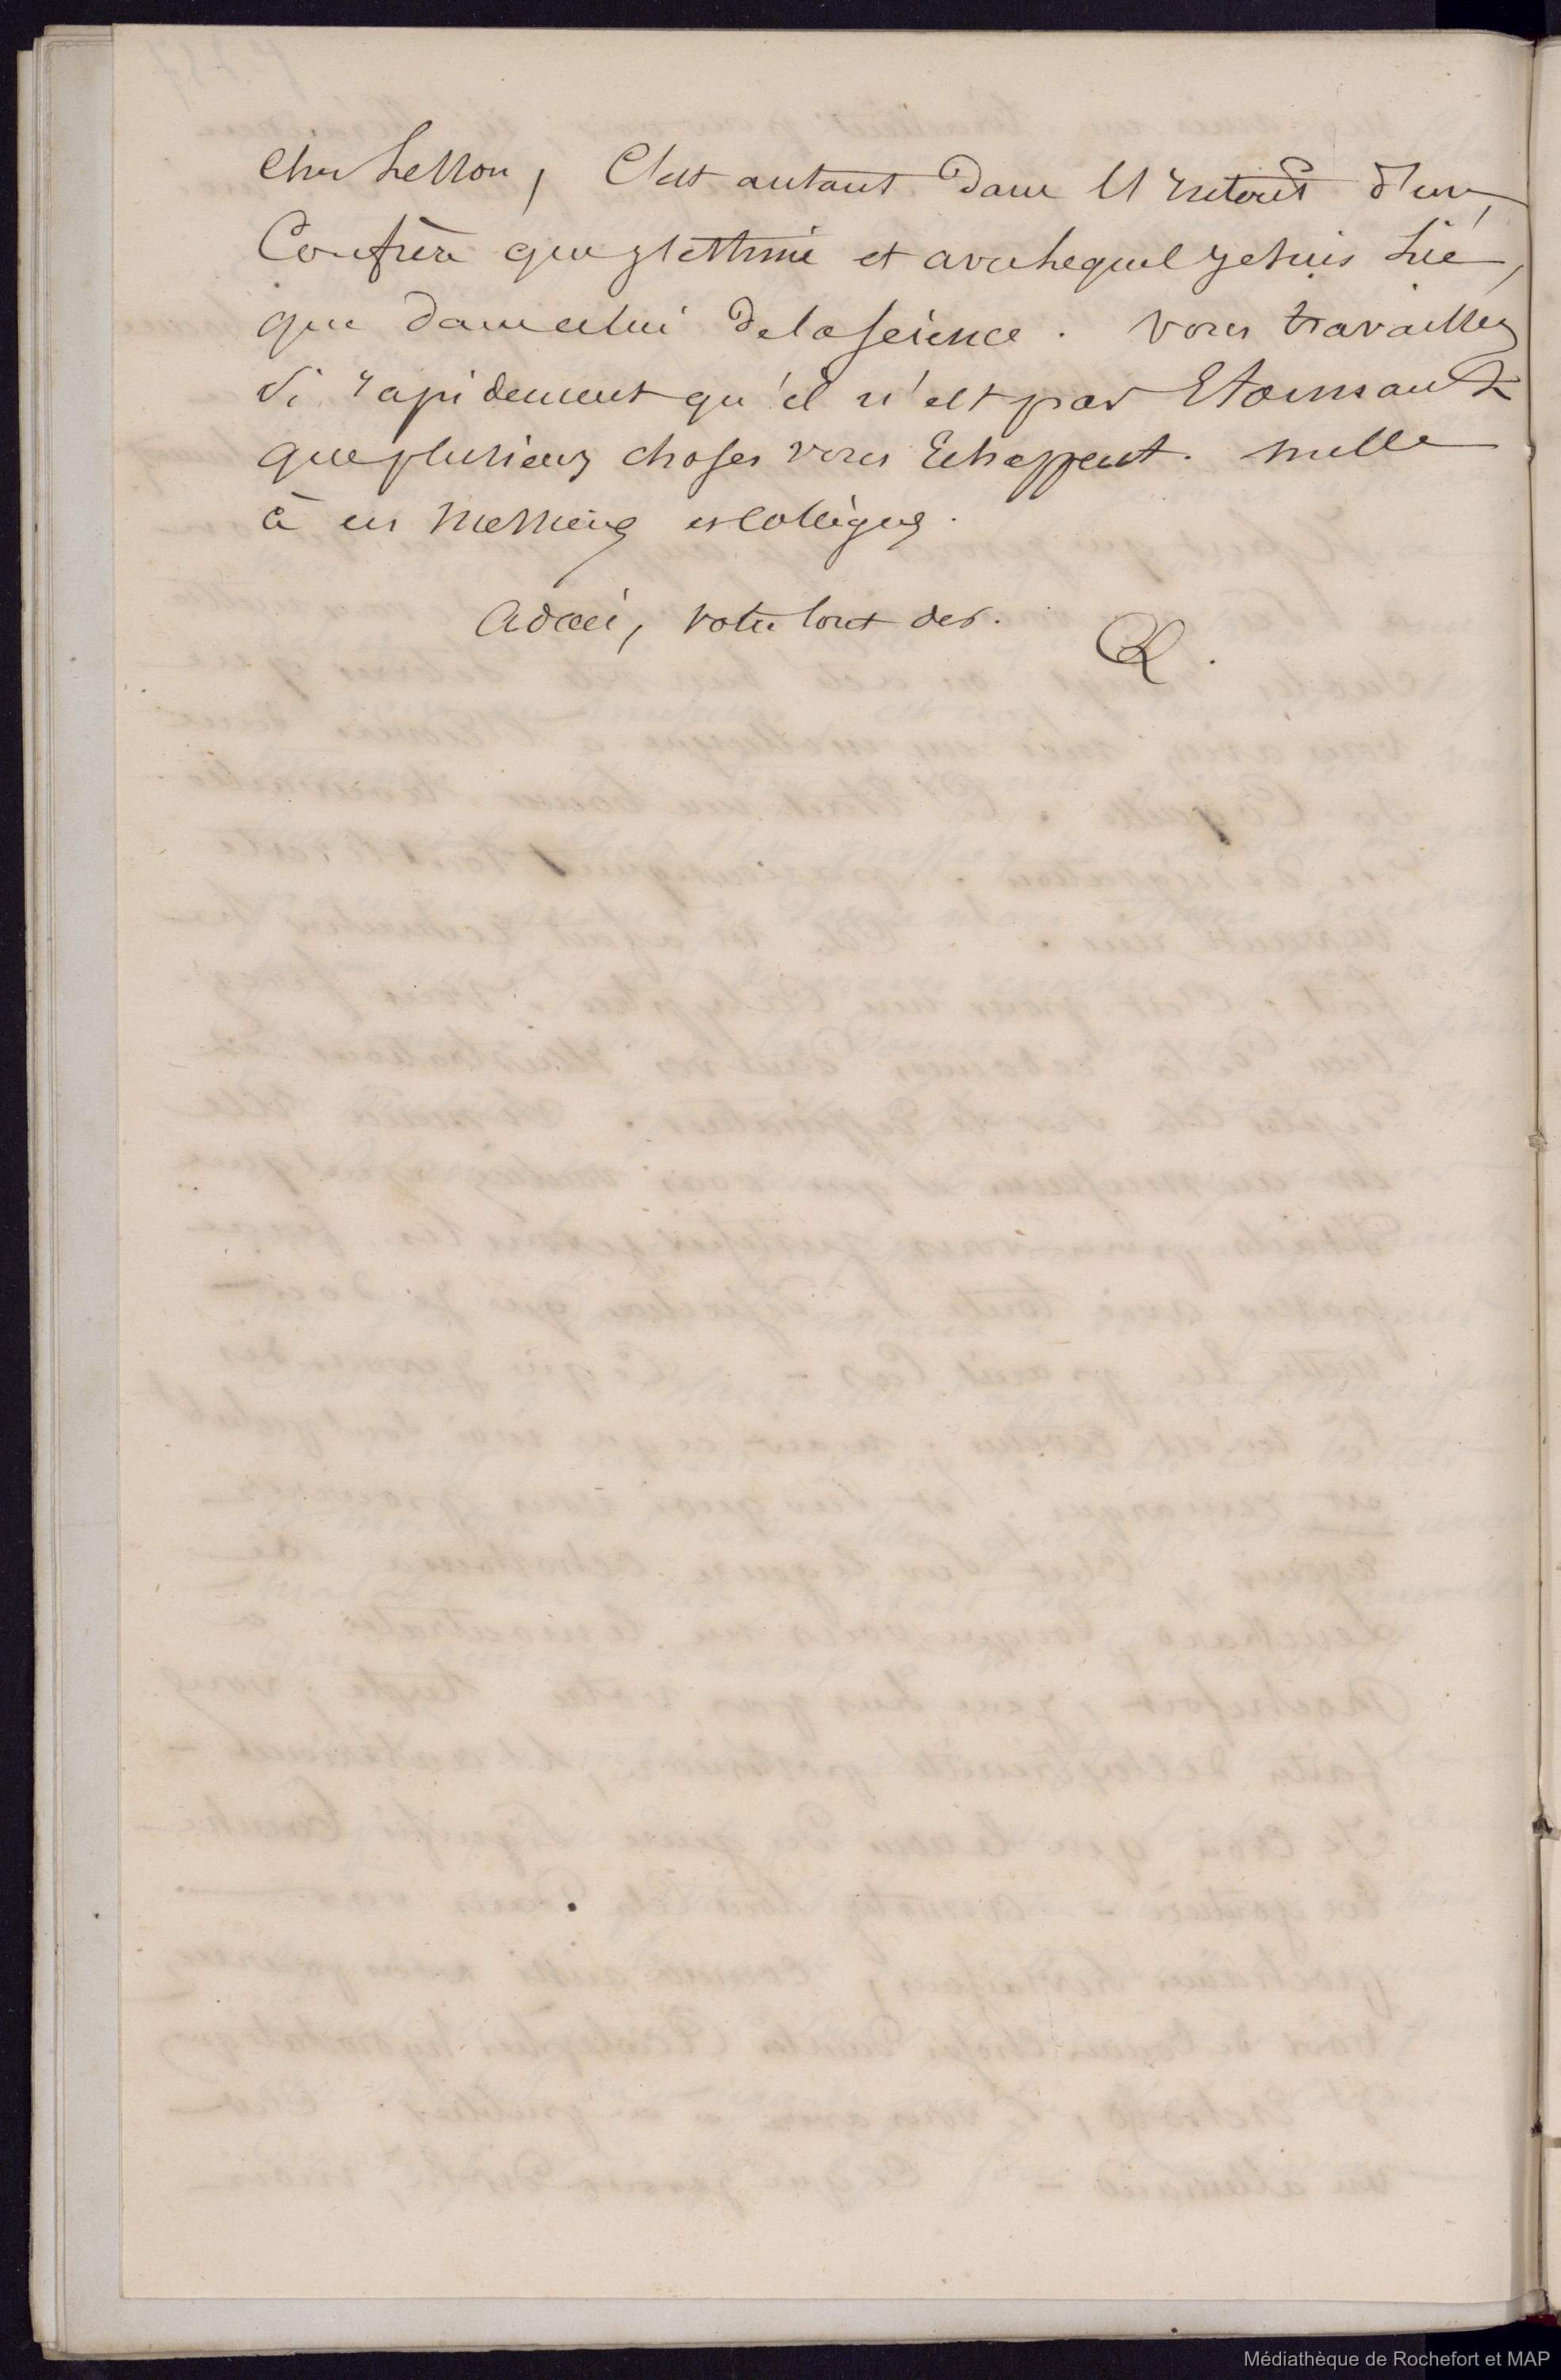 cher Lesson, C'est autant dans l'intérêt d'un
Confrère que j'estime et avec lequel je suis Lié,
que dans celui de la science. vous travaillez
si rapidement qu'il n'est pas Etonnant
que plusieurs choses vous Echappent. mille
à ces Messieurs es Collègues.
adieu, votre tout dev.
R.
Médiathèque de Rochefort et MAP